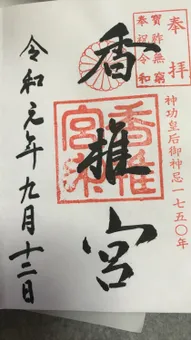 奉拝
祚無窮
奉祝令和
神功皇后御神忌一七五〇年
香椎宮
香椎
宮印
令和元年九月十二日